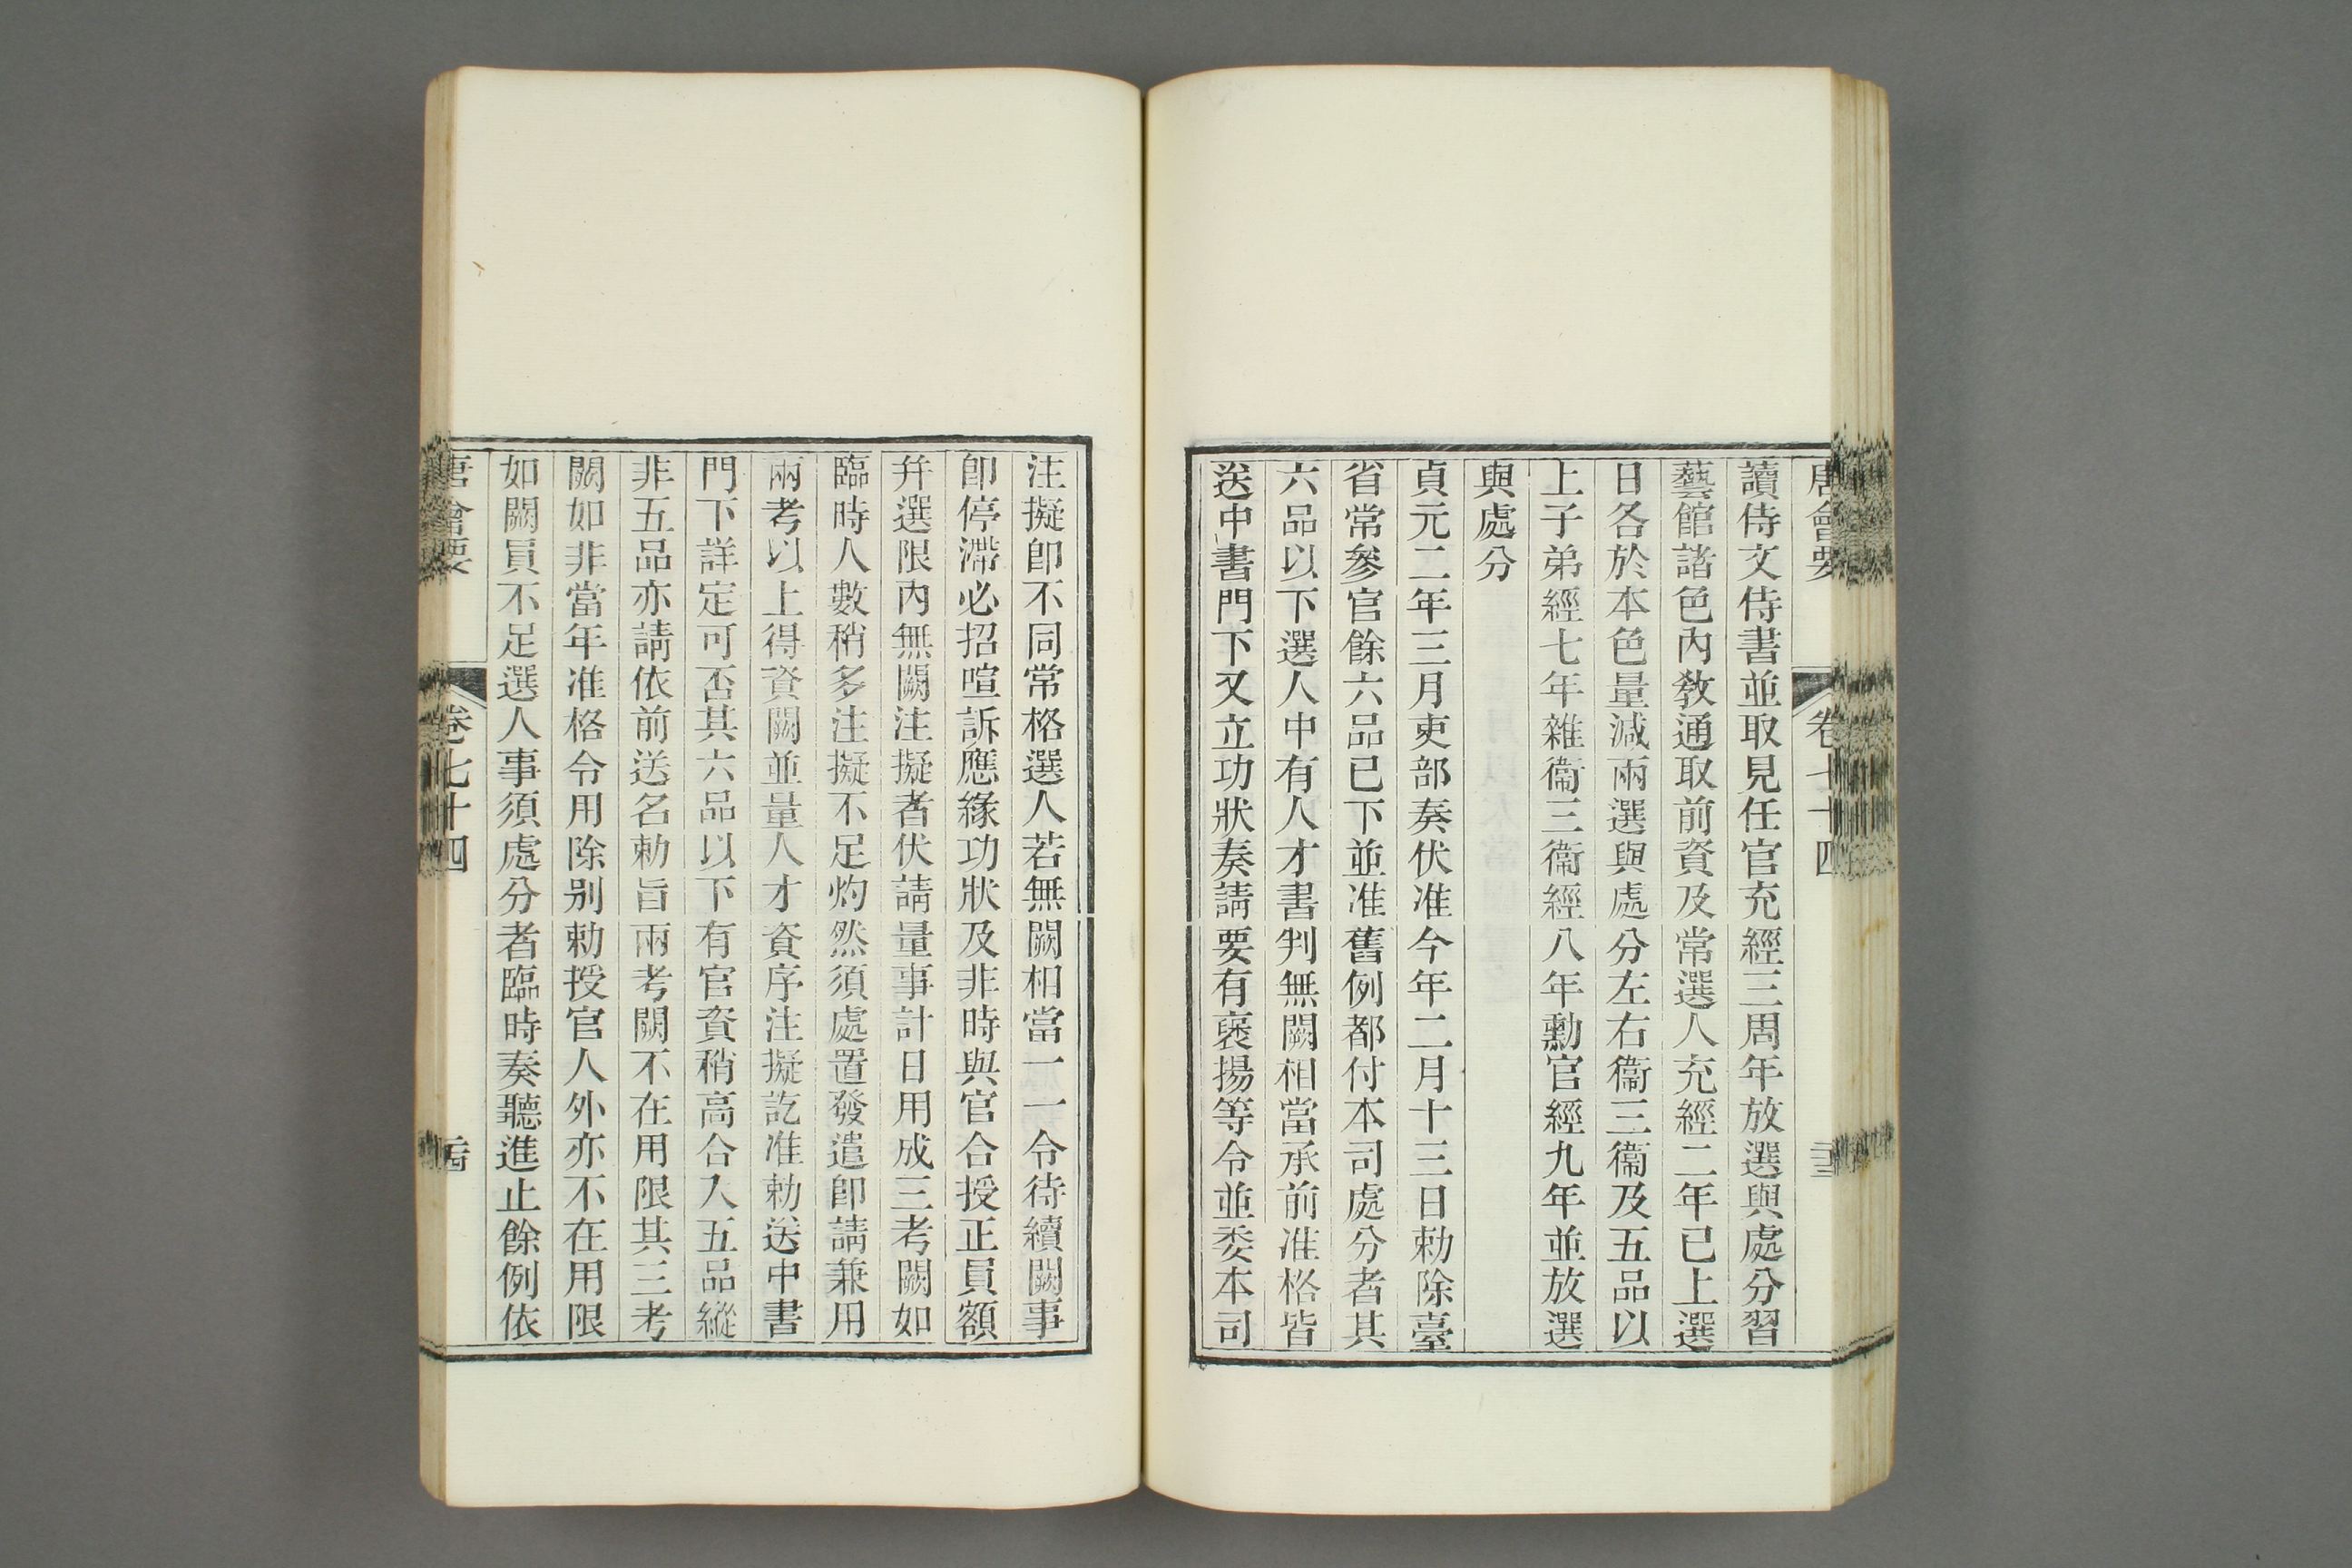 唐會要 卷七十四
讀侍文侍書並取見任官充經三周年放選與處分習
藝館諸色內敎通取前資及常選人充經二年已上選
日各於本色量減兩選與處分左右衞三衞及五品以
上子弟經七年雜衞三衞經八年勳官經九年並放選
與處分
貞元二年三月吏部奏伏准今年二月十三日勅除臺
省常參官餘六品已下並准舊例都付本司處分者其
六品以下選人中有人才書判無闕相當承前准格皆
送中書門下又立功狀奏請要有襃揚等令並委本司
注擬卽不同常格選人若無闕相當一一令待續闕事
卽停滯必招喧訴應緣功狀及非時與官合授正員額
幷選限內無闕注擬者伏請量事計日用成三考闕如
臨時人數稍多注擬不足灼然須處置發遣卽請兼用
兩考以上得資闕並量人才資序注擬訖准勅送中書
門下詳定可否其六品以下有官資稍高合入五品縱
非五品亦請依前送名勅旨兩考闕不在用限其三考
闕如非當年准格令用除别勅授官人外亦不在用限
如闕員不足選人事須處分者臨時奏聽進止餘例依
唐會要 卷七十四